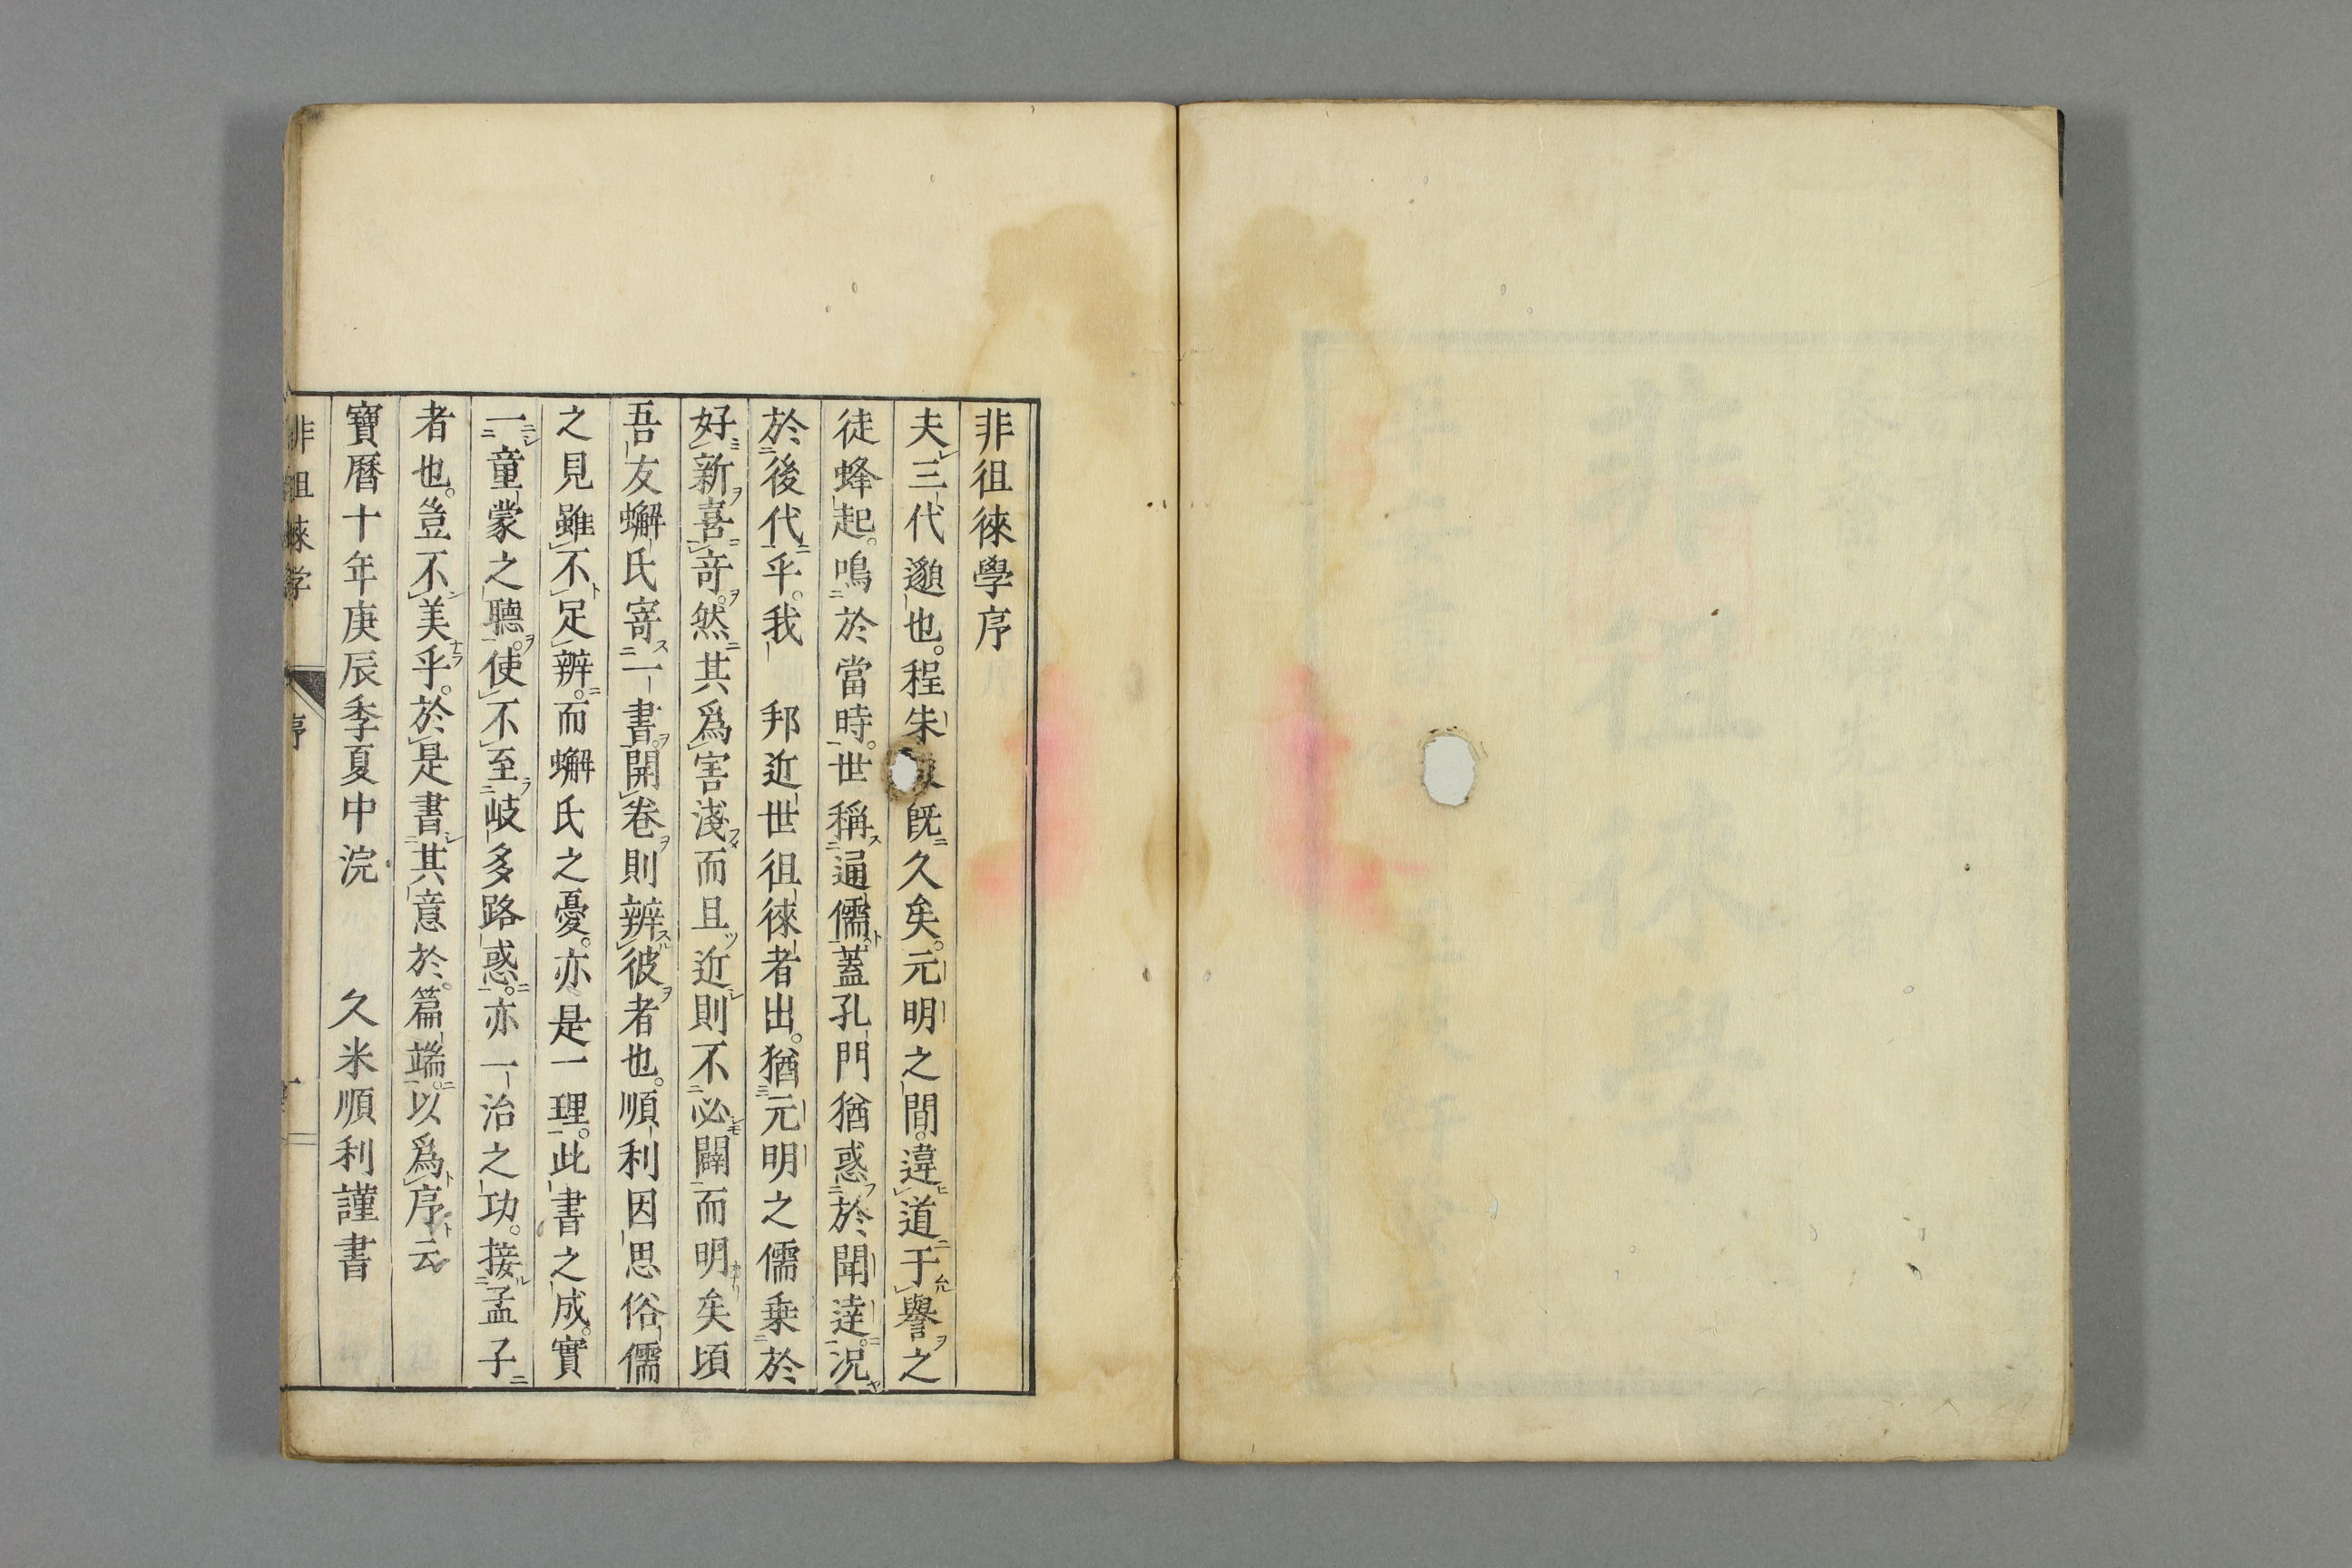 非徂徠學序
夫三代邈也程朱既久矣元明之間違道于譽之
徒蜂起鳴於當時世稱通儒蓋孔門猶惑於聞達況
於後代乎我 邦近世徂徠者出猶元明之儒乗於
好新喜竒然其爲害淺而且近則不必闢而明矣頃
吾友蠏氏寄一書開卷則辨彼者也順利因思俗儒
之見雖不足辨而蠏氏之憂亦是一理此書之成實
一童蒙之聽使不至岐多路惑亦一治之功接孟子
者也豈不美乎於是書其意於篇端以爲序云
寶曆十年庚辰季夏中浣 久米順利謹書
非徂徠学 序